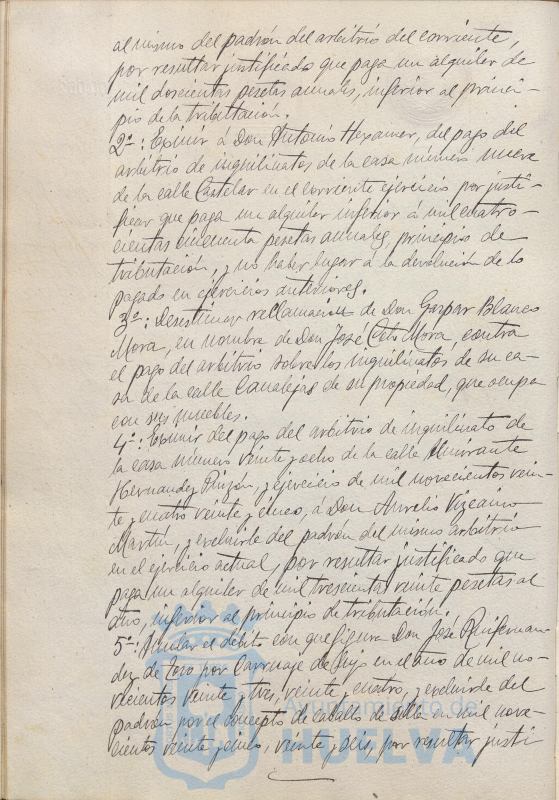 al mismo del padrón del arbitrio del corriente,
por resultar justificado que paga un alquiler de
mil doscientas pesetas anuales, inferior al princi-
pio de la tributación.
2º: Eximir á Don Antonio Hexamer, del pago del
arbitrio de inquilinatos de la casa número nueve
de la calle Castelar en el corriente ejercicio por justi-
ficar que paga un alquiler inferior á mil cuatro-
cientas cincuenta pesetas anuales, principio de
tributación, y no haber lugar á la devolución de lo
pagado en ejercicios anteriores.
3º: Desestimar reclamación de Don Gaspar Blanco
Mora, en nombre de Don José Mora, contra
el pago del arbitrio sobre los inquilinatos de su ca-
sa de la calle Canalejas de su propiedad, que ocupa
con sus muebles.
4º: Eximir del pago del arbitrio de inquilinato de
la casa número veinte y ocho de la calle Almirante
Hernandez Pinzón, y ejercicio de mil novecientos vein-
te y cuatro veinte y cinco, á Don Aurelio Vizcaino
Martín, y excluirle del padrón del mismo arbitrio
en el ejercicio actual, por resultar justificado que
paga un alquiler de mil trescientas veinte pesetas al
año, inferior al principio de tributación.
5º: Anular el débito con que figura Don José
de Toro por Carruaje de lujo en el año de mil no-
vecientos veinte y tres, veinte y cuatro, y excluirle del
padrón por el concepto de caballo de silla en mil nove-
cientos veinte y cinco, veinte y seis, por resultar justi-
Ayuntamiento de
HUELVA